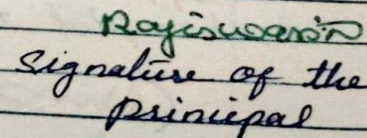 Rajiswarin
Signature of the
principal